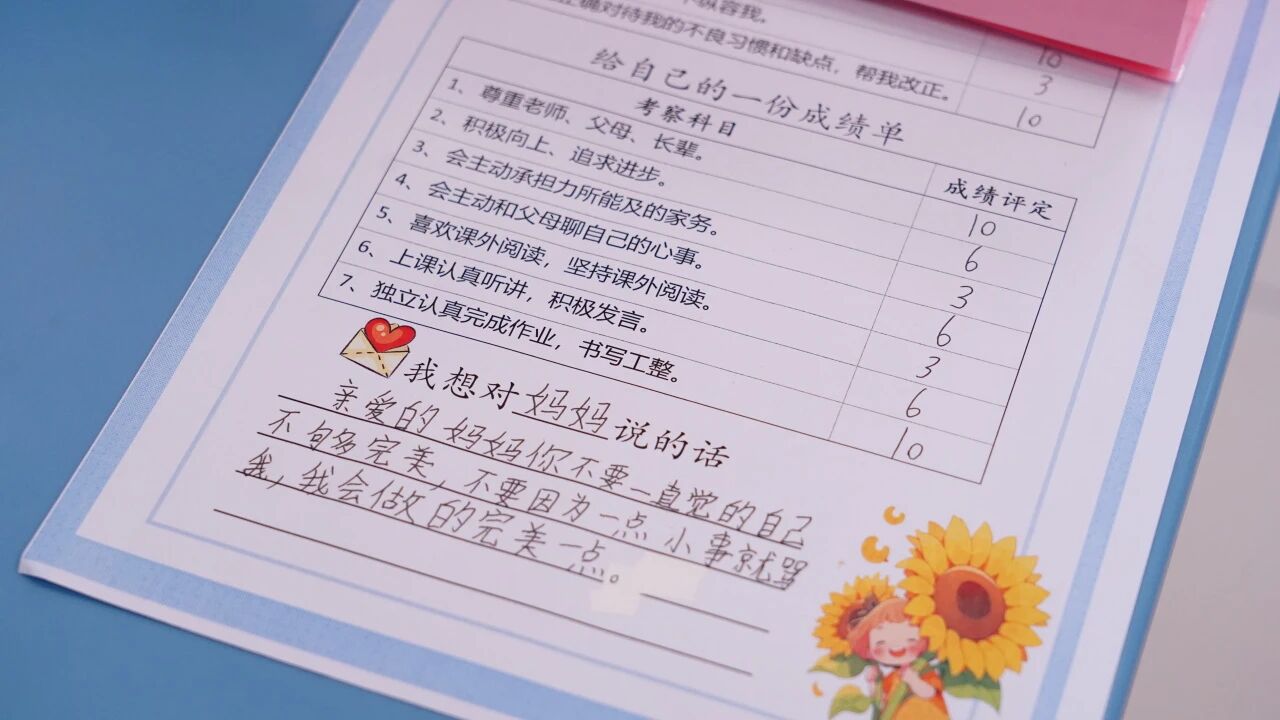 纵容我。
10
3
正确对待我的不良习惯和缺点，帮我改正。 10
给自己的一份成绩单
考察科目 成绩评定
1、尊重老师、父母、长辈。 10
2、积极向上、追求进步。 6
3、会主动承担力所能及的家务。 3
4、会主动和父母聊自己的心事。 6
5、喜欢课外阅读，坚持课外阅读。 3
6、上课认真听讲，积极发言。 6
7、独立认真完成作业，书写工整。 10
我想对妈妈说的话
亲爱的妈妈你不要一直觉的自己
不够完美，不要因为一点小事就骂
我，我会做的完美一点。